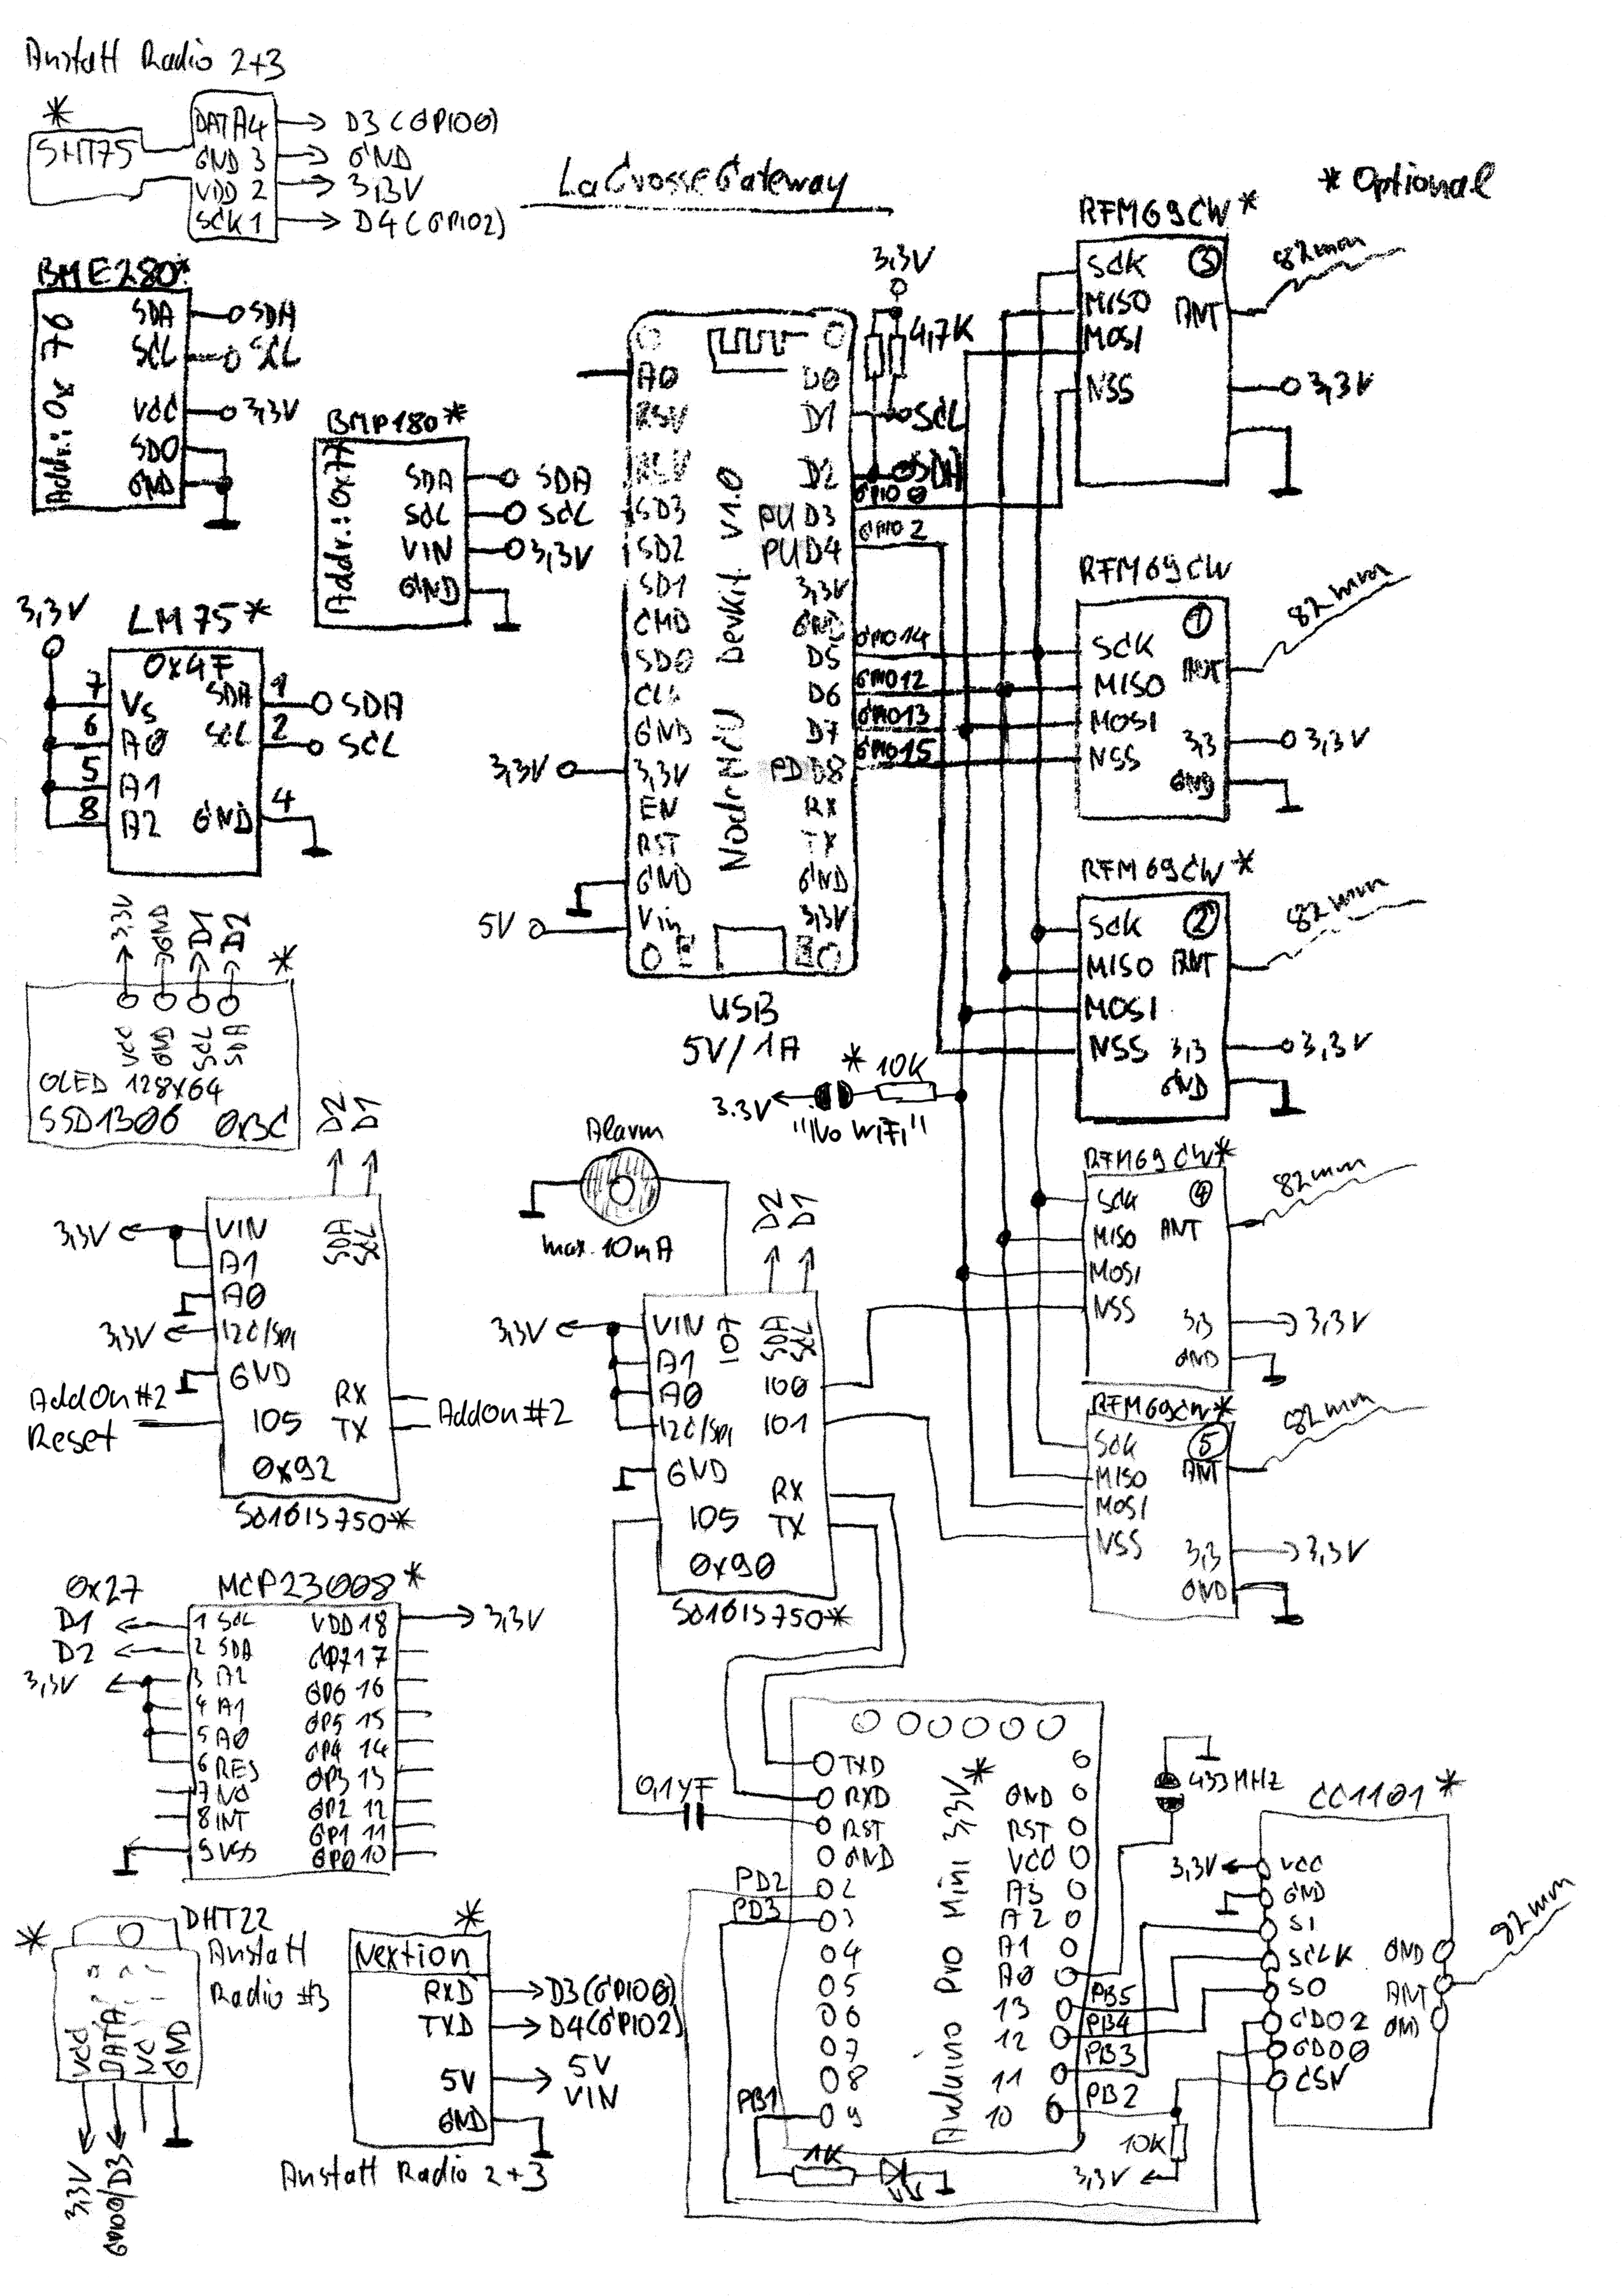 Anstatt Radio 2+3
*
SHT75
DATA 4 → D3 (GPIO0)
GND 3 → GND
VDD 2 → 3,3V
SCK 1 → D4 (GPIO2)
LaCrosseGateway
* Optional
BME280*
Addr.: 0x76
SDA SDA
SCL SCL
VCC 3,3V
SDO
GND
BMP180*
Addr.: 0x77
SDA SDA
SCL SCL
VIN 3,3V
GND
3,3V
LM75*
0x4F
7 Vs SDA 1 SDA
6 A0 SCL 2 SCL
5 A1
8 A2 GND 4
3,3V GND D1 D2
*
VCC GND SCL SDA
OLED 128x64
SSD1306 0x3C
3,3V
4,7K
NodeMCU DevKit V1.0
A0 D0
RSV D1 SCL
RSV D2 SDA
SD3 PU D3 GPIO 0
SD2 PU D4 GPIO 2
SD1 3,3V
CMD GND
SD0 D5 GPIO14
CLK D6 GPIO12
GND D7 GPIO13
3,3V 3,3V PD D8 GPIO15
EN RX
RST TX
GND GND
5V Vin 3,3V
USB
5V/1A
* 10K
3.3V
"No WiFi"
RFM69CW*
3
82mm
SCK
MISO ANT
MOSI
NSS 3,3V
RFM69CW
1
82mm
SCK
MISO ANT
MOSI
NSS 3,3 3,3V
GND
RFM69CW*
2
82mm
SCK
MISO ANT
MOSI
NSS 3,3 3,3V
GND
RFM69CW*
4
82mm
SCK
MISO ANT
MOSI
NSS
3,3 3,3V
GND
RFM69CW*
5
82mm
SCK
MISO ANT
MOSI
NSS
3,3 3,3V
GND
D2 D1
3,3V VIN SDA SCL
A1
A0
3,3V I2C/SPI
GND
AddOn #2
Reset
IO5
RX
TX
AddOn #2
0x92
SC16IS750*
Alarm
max. 10mA
D2 D1
3,3V VIN IO7 SDA SCL
A1
A0 IO0
I2C/SPI IO1
GND
RX
IO5 TX
0x90
SC16IS750*
0x27
MCP23008*
D1 1 SCL VDD 18 3,3V
D2 2 SDA GP7 17
3,3V 3 A2 GP6 16
4 A1 GP5 15
5 A0 GP4 14
6 RES GP3 13
7 NC GP2 12
8 INT GP1 11
9 VSS GP0 10
*
DHT22
Anstatt
Radio #3
VCC DATA NC GND
3,3V
GPIO0/D3
*
Nextion
RXD → D3 (GPIO0)
TXD → D4 (GPIO2)
5V → 5V
VIN
GND
Anstatt Radio 2+3
0,1µF
Arduino Pro Mini 3,3V*
TXD
RXD GND
RST RST
GND VCC
PD2 2 A3
PD3 3 A2
4 A1
5 A0
6 13 PB5
7 12 PB4
8 11 PB3
PB1 9 10 PB2
1K
433MHZ
CC1101*
3,3V VCC
GND
SI
SCLK GND
SO ANT
GDO2 GND
GDO0
CSN
82mm
10K
3,3V